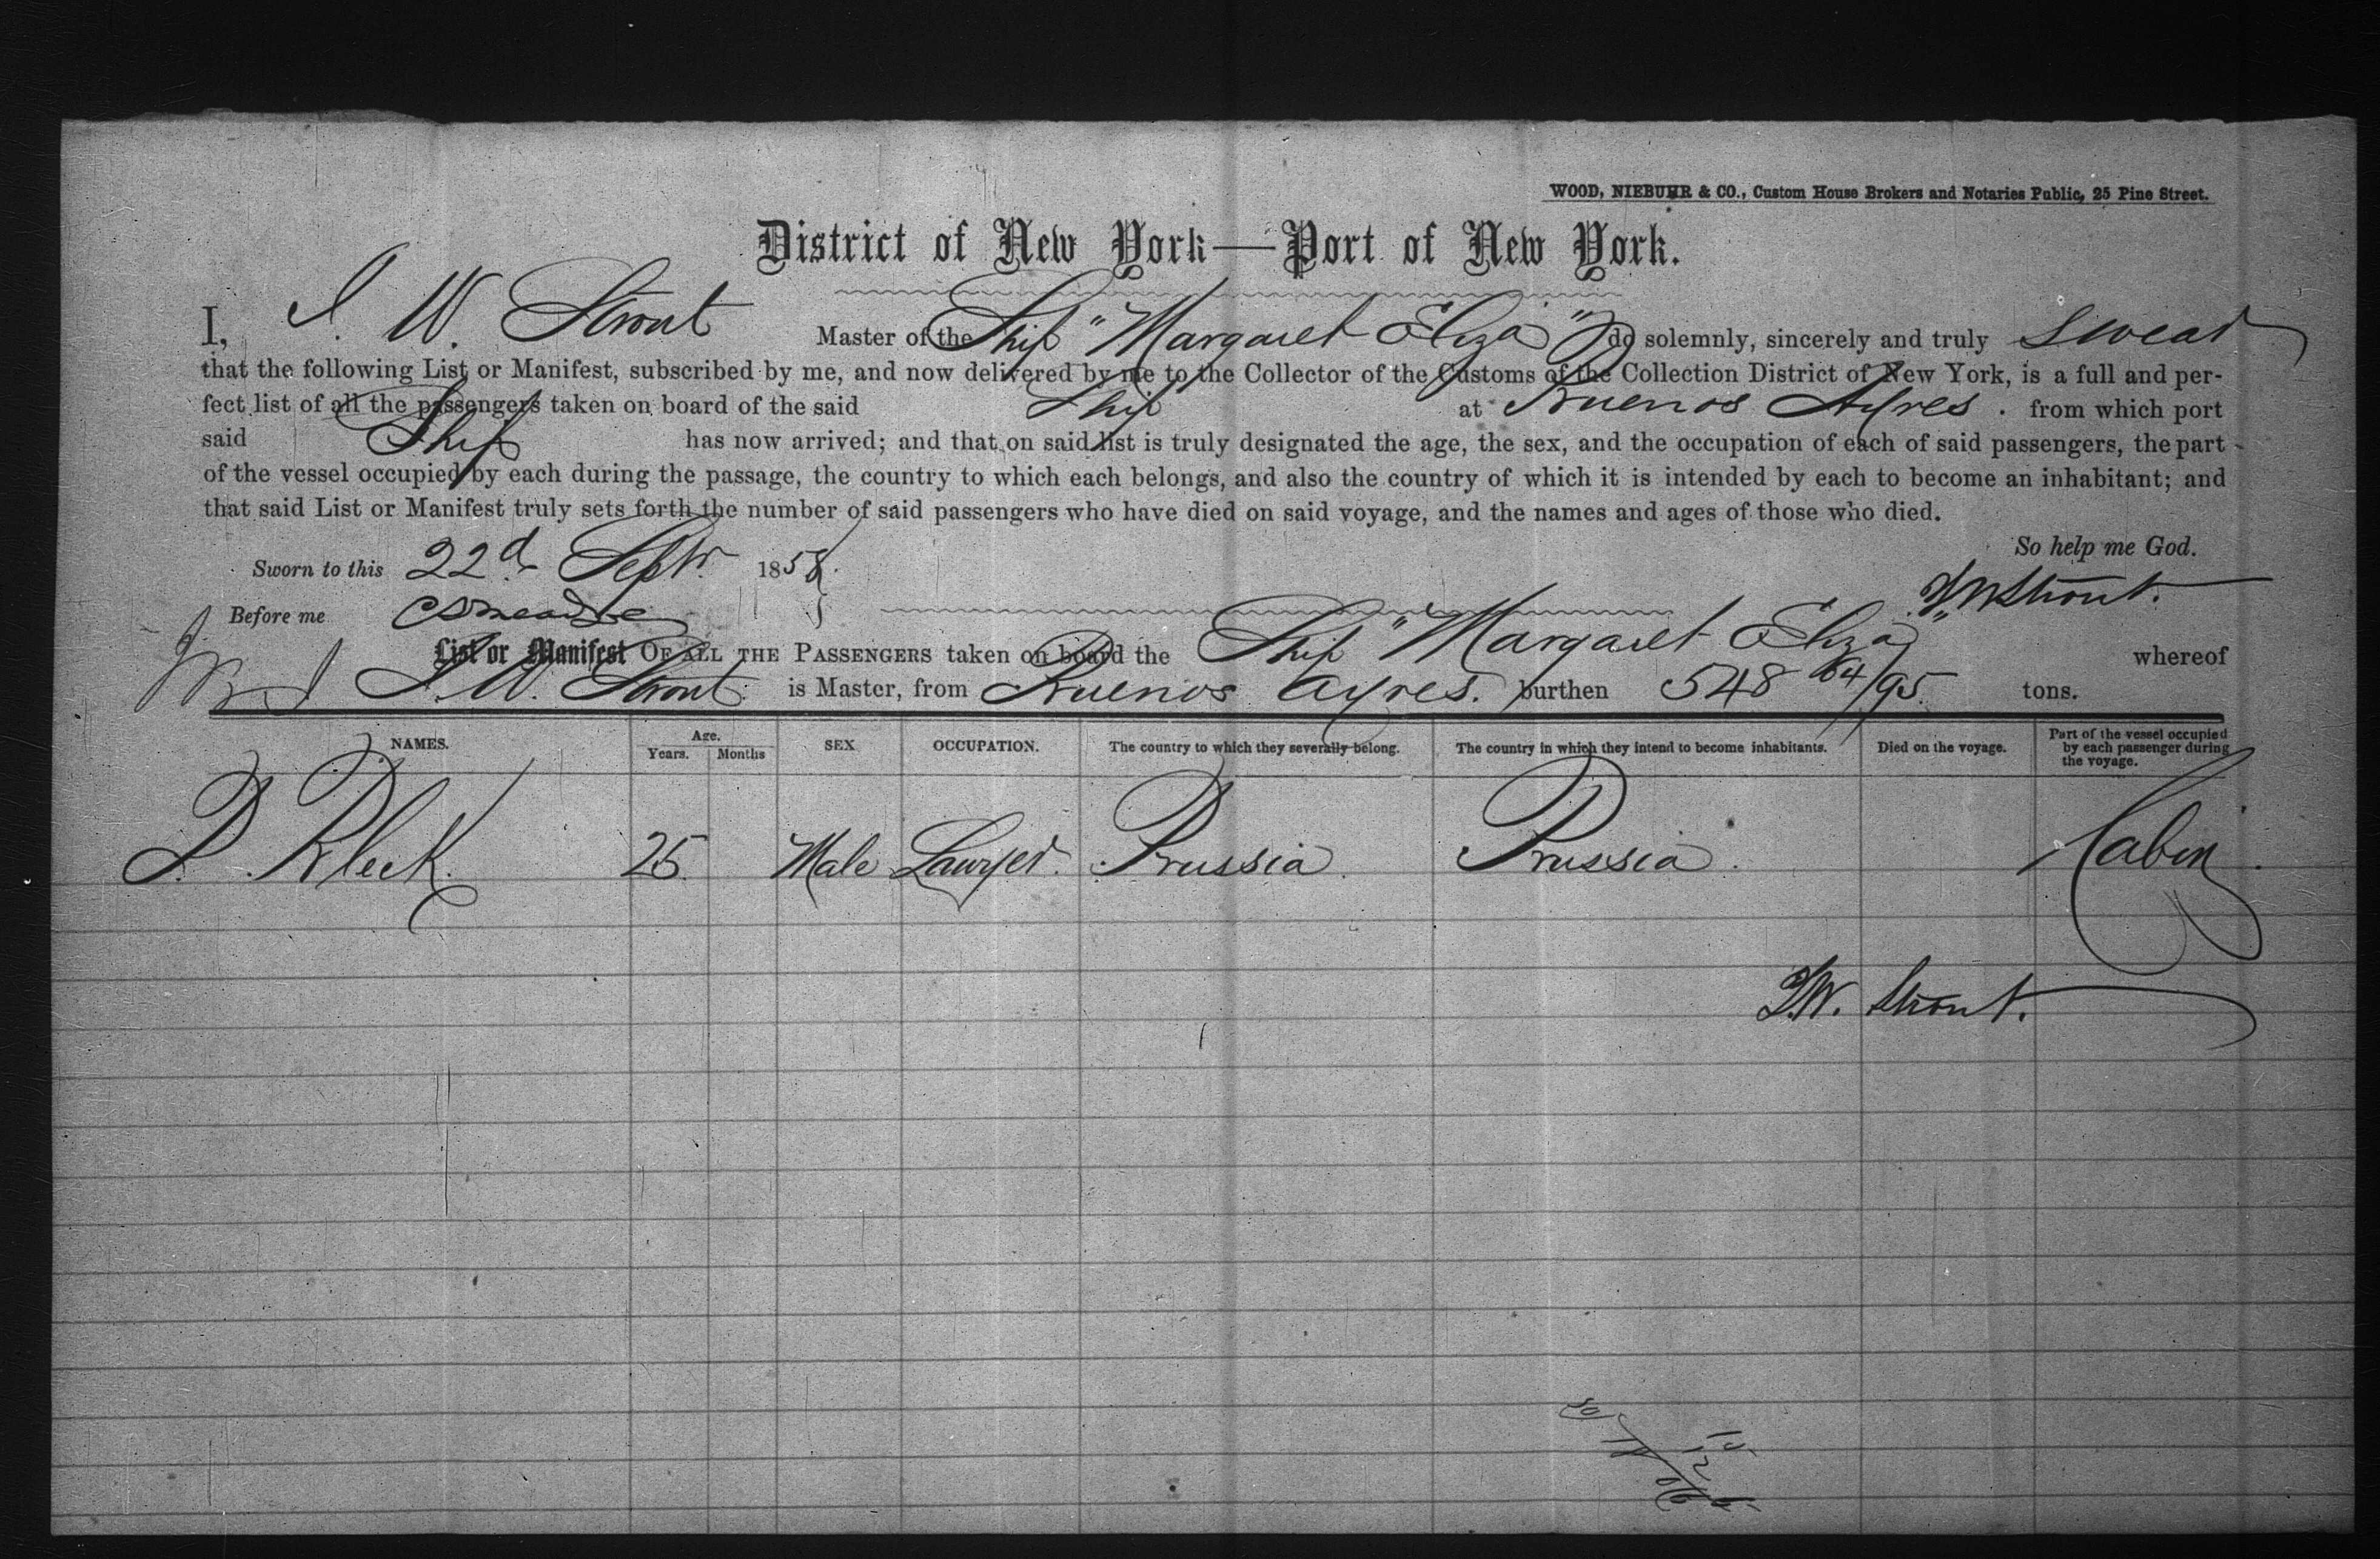 WOOD, NIEBUHR & CO., Custom House Brokers and Notaries Public, 25 Pine Street.
District of New York—Port of New York.
I, J. W. Strout Master of the Ship "Margaret Eliza" do solemnly, sincerely and truly swear
that the following List or Manifest, subscribed by me, and now delivered by me to the Collector of the Customs of the Collection District of New York, is a full and per-
fect list of all the passengers taken on board of the said Ship at Buenos Ayres. from which port
said Ship has now arrived; and that on said list is truly designated the age, the sex, and the occupation of each of said passengers, the part
of the vessel occupied by each during the passage, the country to which each belongs, and also the country of which it is intended by each to become an inhabitant; and
that said List or Manifest truly sets forth the number of said passengers who have died on said voyage, and the names and ages of those who died.
So help me God.
Sworn to this 22d Septr. 1858.
J W Strout.
Before me
List or Manifest OF ALL THE PASSENGERS taken on board the Ship "Margaret Eliza" whereof
J. W. Strout is Master, from Buenos Ayres. burthen 548 64/95 tons.
NAMES. Age. Years. Months SEX OCCUPATION. The country to which they severally belong. The country in which they intend to become inhabitants. Died on the voyage. Part of the vessel occupied by each passenger during the voyage.
P. Bleck. 25 Male Lawyer. Prussia. Prussia. Cabin.
J.W. Strout.